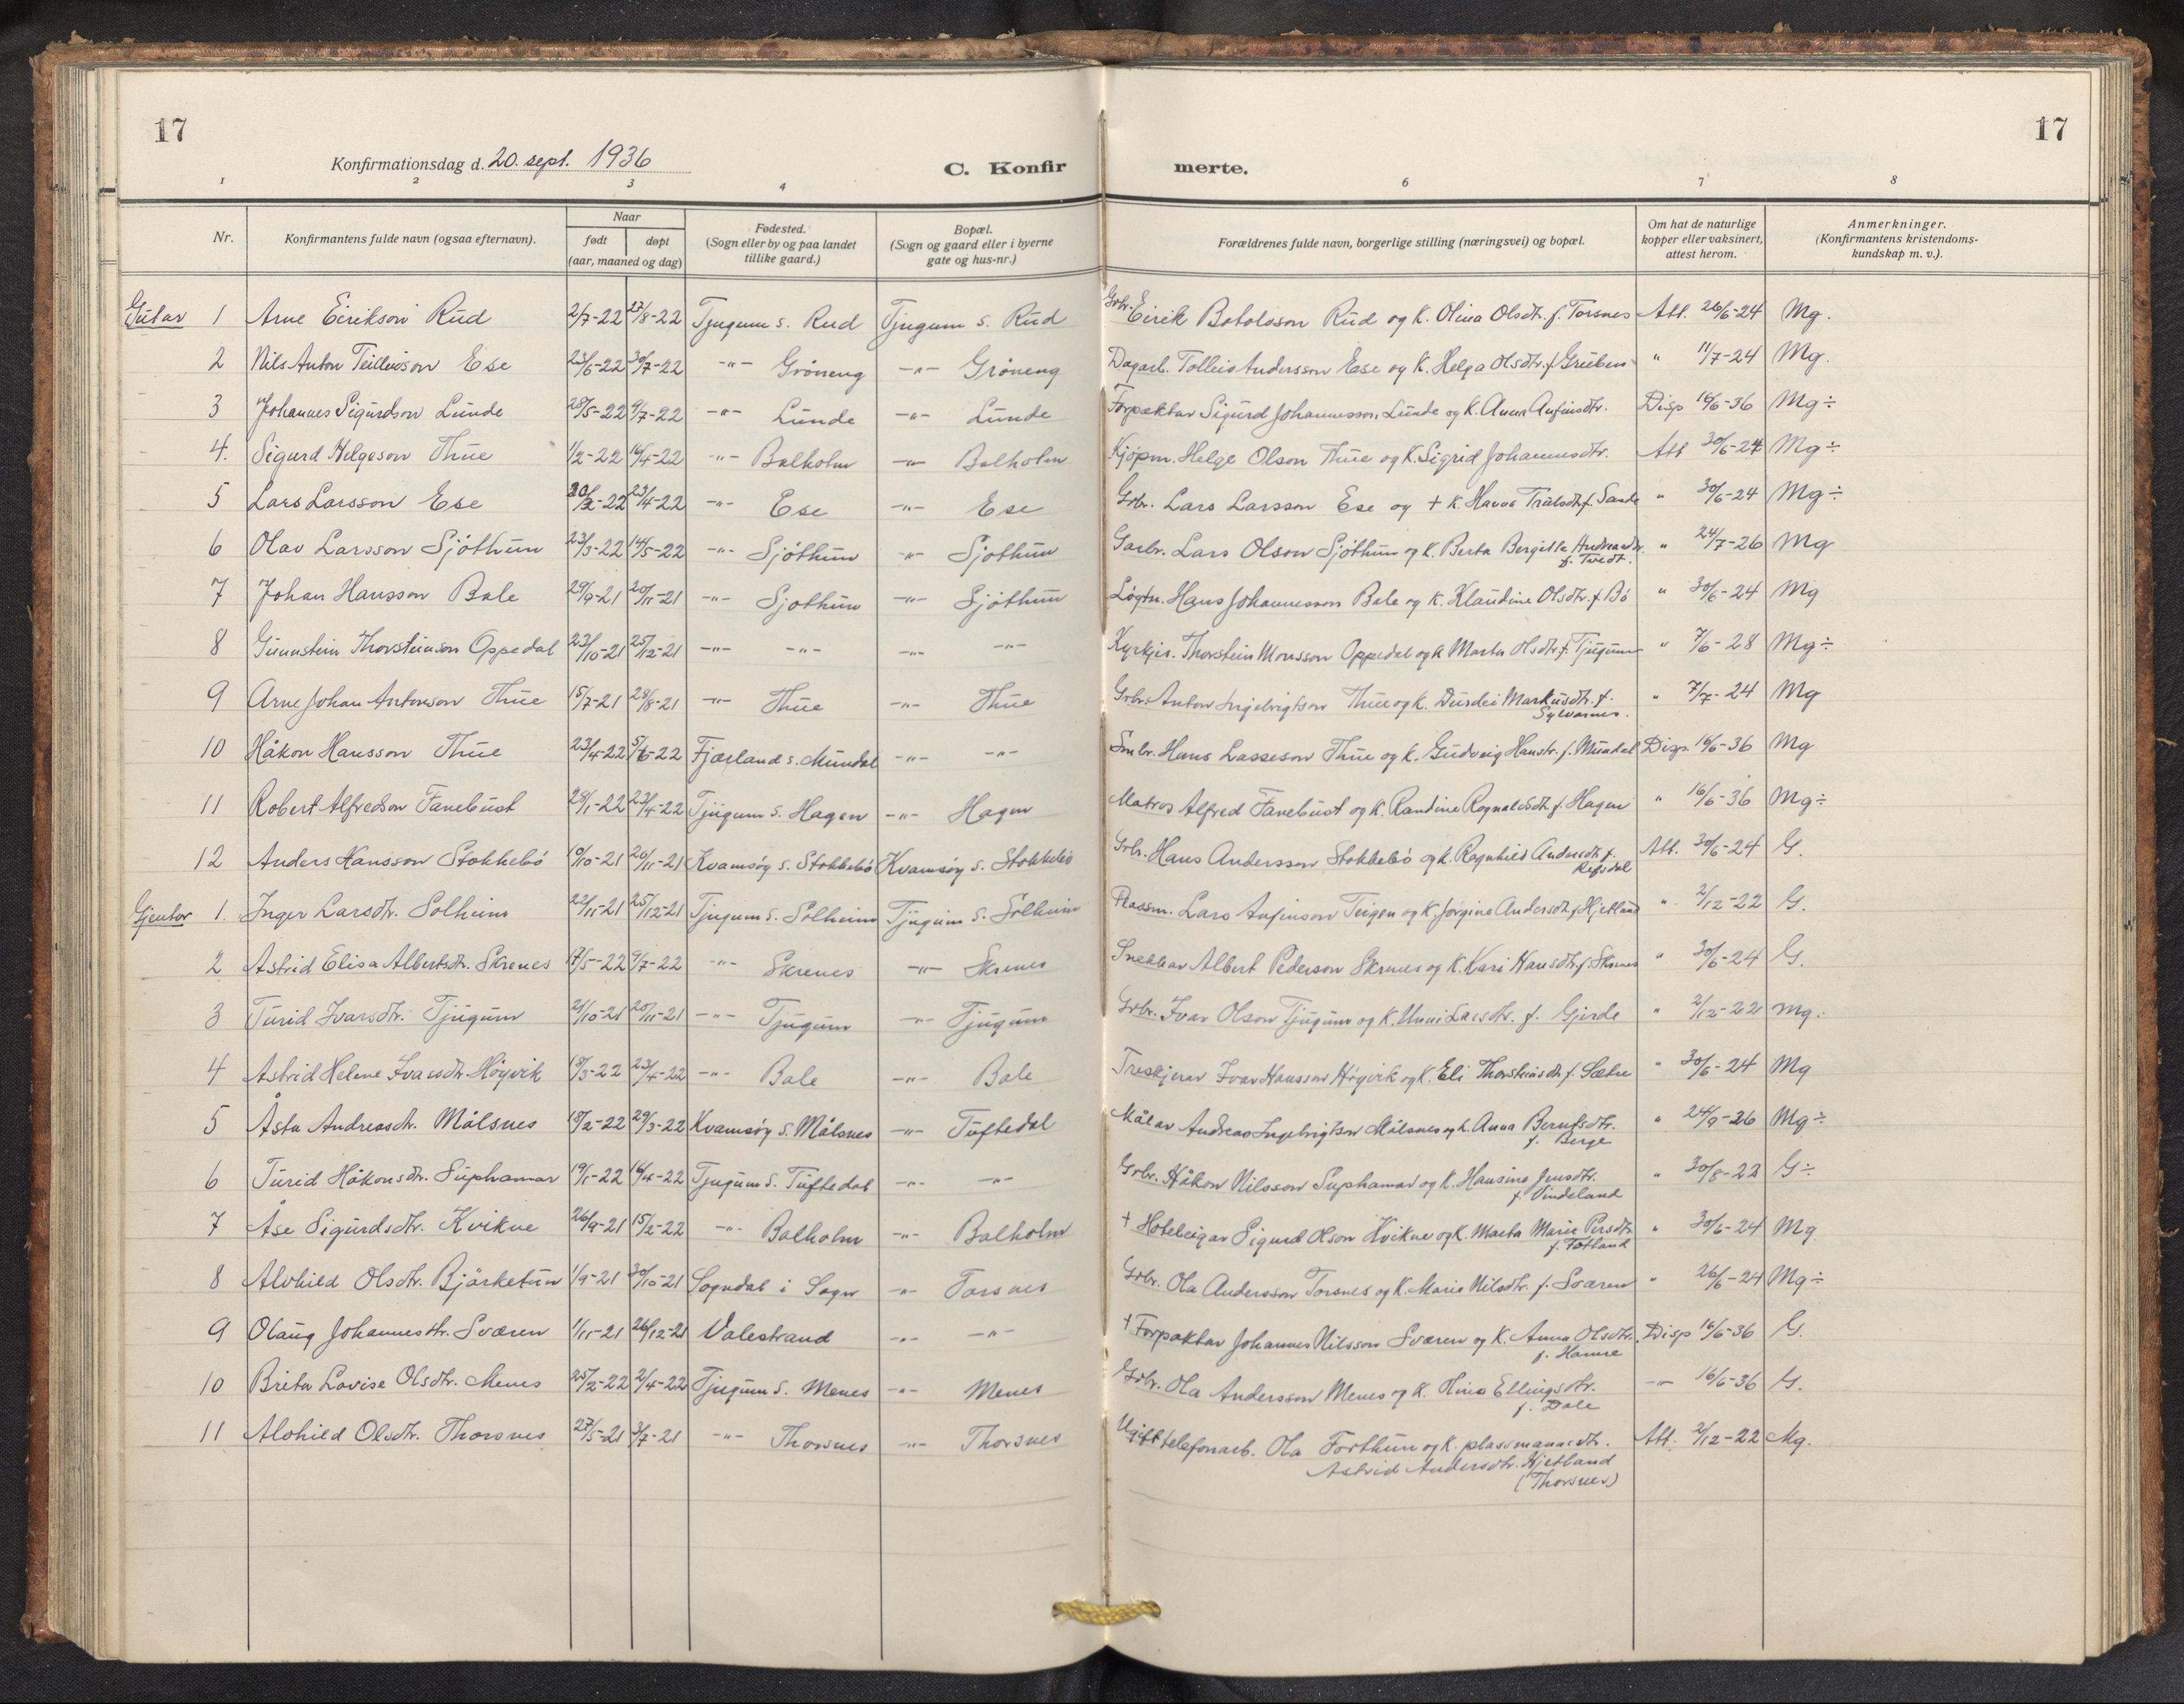 17
17
Konfirmationsdag d. 20. sept. 1936
C. Konfirmerte.
1 2 3 4 6 7 8
Nr. Konfirmantens fulde navn (ogsaa efternavn). Naar født døpt (aar, maaned og dag) Fødested. (Sogn eller by og paa landet tillike gaard.) Bopæl. (Sogn og gaard eller i byerne gate og hus-nr.) Forældrenes fulde navn, borgerlige stilling (næringsvei) og bopæl. Om hat de naturlige kopper eller vaksinert, attest herom. Anmerkninger. (Konfirmantens kristendoms-kundskap m. v.).
Gutar 1 Arne Eirikson Rud 2/7-22 27/8-22 Tjugum s. Rud Tjugum s. Rud Grbr. Eirik Botolvson Rud og k. Olina Olsdtr. f. Torsnes Att. 26/6-24 Mg.
2 Nils Anton Teillevson Ese 23/6-22 30/7-22 -"- Gröneng -"- Gröneng Dagarb. Tolleiv Andersson Ese og k. Helga Olsdtr. f. Grüben " 11/7-24 Mg.
3 Johannes Sigurdson Lunde 28/5-22 9/7-22 -"- Lunde -"- Lunde Forpaktar Sigurd Johannesson Lunde og k. Anna Anfinsdtr. Disp 16/6-36 Mg÷
4. Sigurd Helgeson Thue 1/2-22 16/4-22 -"- Balholm -"- Balholm Kjöpm. Helge Olson Thue og k. Sigrid Johannesdtr. Att 30/6-24 Mg÷
5 Lars Larsson Ese 20/2-22 23/4-22 -"- Ese -"- Ese Grbr. Lars Larsson Ese og + k. Hanna Trulsdtr f. Sande " 30/6-24 Mg÷
6 Olav Larsson Sjöthun 23/3-22 14/5-22 -"- Sjöthun -"- Sjöthun Garbr. Lars Olson Sjöthun og k. Berta Bergitte Andreasdtr. f. Tvedt. " 24/7-26 Mg
7 Johan Hansson Bale 29/9-21 20/11-21 -"- Sjöthun -"- Sjöthun Lögtn. Hans Johannesson Bale og k. Klaudine Olsdtr. f. Bö " 30/6-24 Mg
8 Gunnstein Thorsteinson Oppedal 23/10-21 25/12-21 -"- -"- -"- -"- Kyrkjes. Thorstein Monsson Oppedal og k Marta Olsdtr f. Tjugum " 7/6-28 Mg÷
9 Arne Johan Antonson Thue 15/7-21 28/8-21 -"- Thue -"- Thue Grbr. Anton Ingebrigtson Thue og k. Durdei Markusdtr. f. Sylvarnes. " 7/7-24 Mg
10 Håkon Hansson Thue 23/4-22 5/6-22 Fjærland s. Mundal -"- -"- Smbr. Hans Lasseson Thue og k. Gudveig Hanstr. f. Mundal Disp. 16/6-36 Mg
11 Robert Alfredson Fanebust 28/1-22 23/4-22 Tjugum s. Hagen -"- Hagen Matros Alfred Fanebust og k. Randine Ragnaldsdtr f. Hagen " 16/6-36 Mg÷
12 Anders Hansson Stokkebö 10/10-21 20/11-21 Kvamsöy s. Stokkebö Kvamsöy s. Stokkebö Grbr. Hans Andersson Stokkebö og k. Ragnhild Andersdtr f. Refsdal Att. 30/6-24 G.
Gjentor 1. Inger Larsdtr. Solheim 22/11-21 25/12-21 Tjugum s. Solheim Tjugum s. Solheim Plassm. Lars Anfinson Teigen og k. Jörgine Andersdtr f. Hjetland " 2/12-22 G.
2 Astrid Elisa Albertsdtr. Skrenes 17/5-22 9/7-22 -"- Skrenes -"- Skrenes Snekkar Albert Pederson Skrenes og k. Kari Hansdtr. f. Skrenes " 30/6-24 G.
3 Turid Ivarsdtr. Tjugum 21/10-21 20/11-21 -"- Tjugum -"- Tjugum Grbr. Ivar Olson Tjugum og k. Unni Larsdtr. f. Gjerde " 2/12-22 Mg.
4 Astrid Helene Ivarsdtr. Höyvik 18/3-22 23/4-22 -"- Bale -"- Bale Treskjerar Ivar Hansson Höyvik og k. Eli Thorsteinsdtr f. Sætre " 30/6-24 Mg
5 Åsta Andreasdtr. Målsnes 18/2-22 29/3-22 Kvamsöy s. Målsnes -"- Tuftedal Målar Andreas Ingebrigtson Målsnes og k. Anna Berntsdtr. f. Berge " 24/9-26 Mg÷
6 Turid Håkonsdtr. Suphamar 19/1-22 16/4-22 Tjugum s. Tuftedal -"- -"- Grbr. Håkon Nilsson Suphamar og k. Hansine Jensdtr. f Vindeland " 30/8-22 G÷
7 Åse Sigurdsdtr. Kvikne 26/9-21 15/2-22 -"- Balholm -"- Balholm + Hoteleigar Sigurd Olson Kvikne og k. Marta Marie Persdtr. f. Totland " 30/6-24 Mg
8 Alvhild Olsdtr. Bjärketun 1/9-21 30/10-21 Sogndal i Sogn -"- Torsnes Grbr. Ola Andersson Torsnes og k. Marie Nilsdtr. f. Sværen " 26/6-24 Mg÷
9 Olaug Johannesdtr. Sværen 1/11-21 26/12-21 Valestrand -"- -"- + Forpaktar Johannes Nilsson Sværen og k. Anna Olsdtr. f. Hamre Disp 16/6-36 G.
10 Brita Lovise Olsdtr. Menes 25/2-22 2/4-22 Tjugum s. Menes -"- Menes Grbr. Ola Andersson Menes og k. Olina Ellingsdtr. f. Dale -"- 16/6-36 G.
11 Alvhild Olsdtr. Thorsnes 27/5-21 3/7-21 -"- Thorsnes -"- Thorsnes Ugift telefonarb. Ola Forthun og k. plassmannsdtr. Att. 2/12-22 Mg.
Astrid Andersdtr. Hjetland
(Thorsnes)